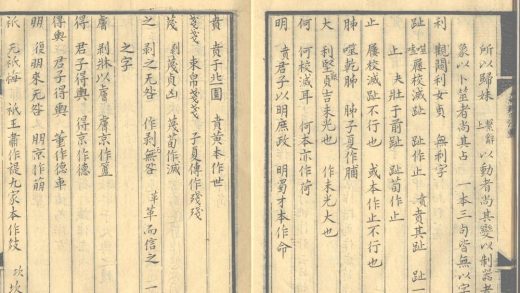 所以歸妹
繫辭上 以動者尚其變以制器者
象以卜筮者尚其占 一本三句皆無以字
利 觀闚利女貞 無利字
趾 噬嗑屨校滅趾 趾作止 賁賁其趾 趾一
止 夬壯于前趾 趾荀作止
止 屨校滅趾不行也 或本作止不行也
肺 噬乾胏 胏子夏作脯
何 何校滅耳 何本亦作荷
大 利艱貞吉未光也 作未光大也
明 賁君子以明庶政 明蜀才本作命
賁 賁于丘園 賁黃本作世
戔戔 束帛戔戔 子夏傳作殘殘
蔑 剝蔑貞凶 蔑荀作滅
之 剝之无咎 作剝無咎 革 革而信之 一
之字
膚 剝牀以膚 膚京作簠
得 君子得輿 得京作德
輿 君子得輿 董作德車
朋 復朋來无咎 朋京作崩
祇 无祇悔 祇王肅作禔九家本作䟗 坎坎